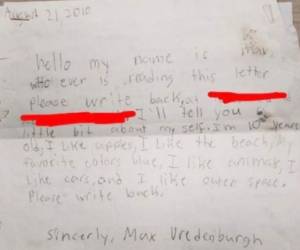 August 21 2010
hello my name is Max
who ever is reading this letter
please write back, at
I'll tell you a
little bit about my self. I'm 10 years
old, I Like apples, I Like the beach, My
favorite colors blue, I like animals, I
Like cars, and I like outer space.
Please write back.
Sincerly, Max Vredenburgh